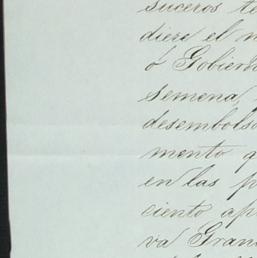 suceros to
diere el m
ó Gobiern
semena,
desembolso
mento q
en las p
ciento ap
va Gran